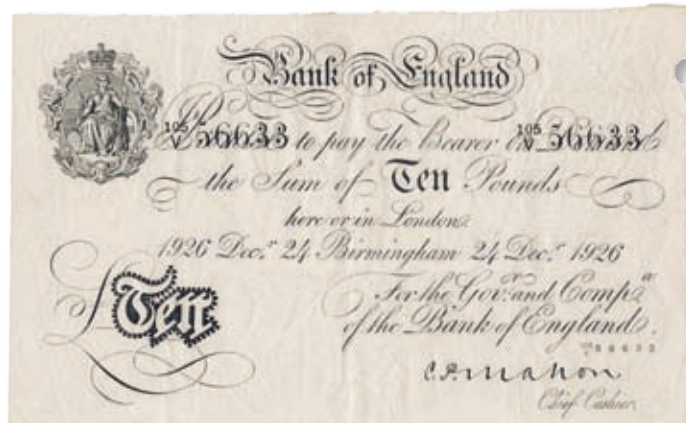 Bank of England
105/V 56633 to pay the Bearer on 105/V 56633
the Sum of Ten Pounds
here or in London.
1926 Decr. 24 Birmingham 24 Decr. 1926
For the Govr. and Compa.
of the Bank of England.
£Ten
C.P. Mahon
Chief Cashier.